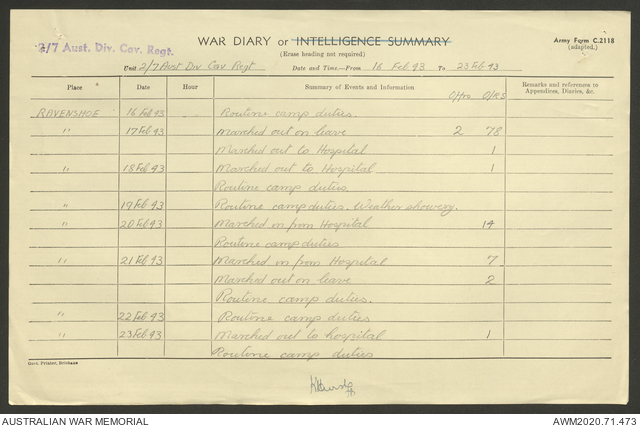 2/7 Aust. Div. Cav. Regt.
WAR DIARY or INTELLIGENCE SUMMARY
Army Form C.2118
(adapted.)
(Erase heading not required)
Unit 2/7 Aust Div Cav Regt Date and Time—From 16 Feb 43 To 23 Feb 43
Place Date Hour Summary of Events and Information O/Hrs O/RS Remarks and references to
Appendices, Diaries, &c.
RAVENSHOE 16 Feb 43 Routine camp duties.
" 17 Feb 43 Marched out on leave 2 78
Marched out to Hospital 1
" 18 Feb 43 Marched out to Hospital 1
Routine camp duties
" 19 Feb 43 Routine camp duties. Weather showery.
" 20 Feb 43 Marched in from Hospital 14
Routine camp duties
" 21 Feb 43 Marched in from Hospital 7
Marched out on leave 2
Routine camp duties.
" 22 Feb 43 Routine camp duties
" 23 Feb 43 Marched out to hospital 1
Routine camp duties
Govt. Printer, Brisbane
AUSTRALIAN WAR MEMORIAL
AWM2020.71.473